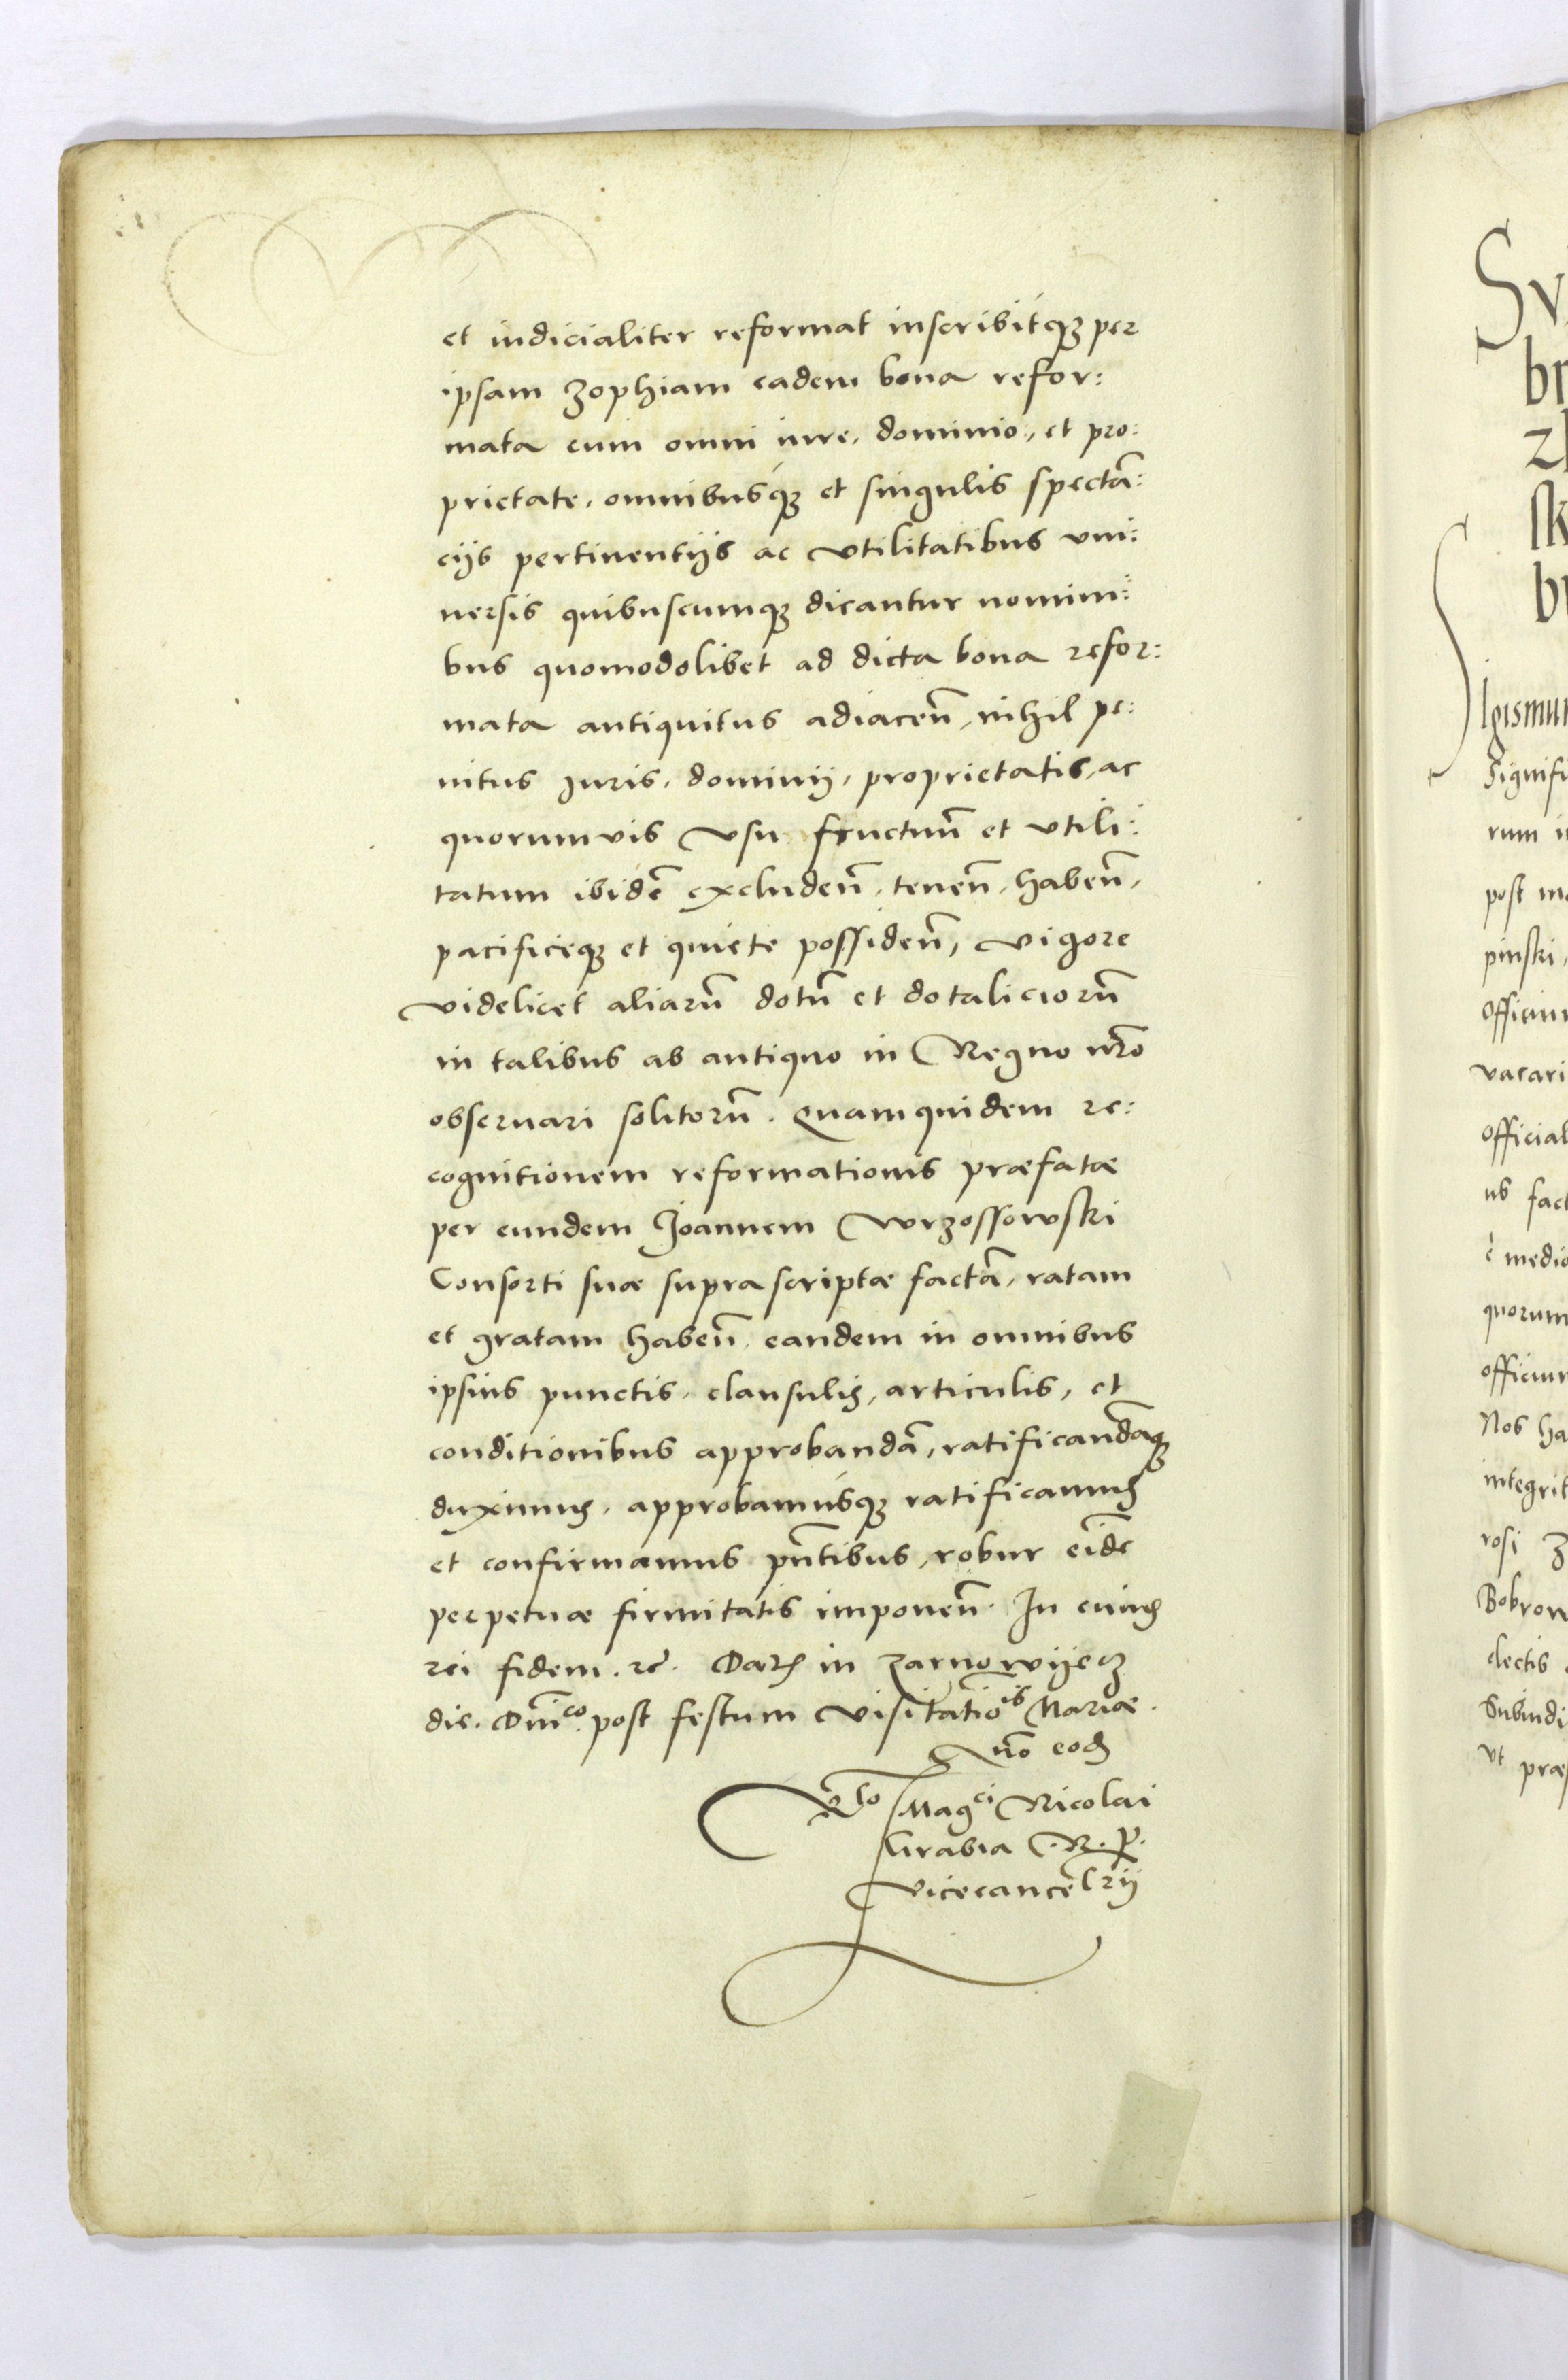 et iudicialiter reformat inscribitq́ꝫ per
ipsam Zophiam eadem bona refor:
mata cum omni iure, dominio, et pro:
prietate, omnibusq́ꝫ et singulis spectā:
cijs pertinentijs ac vtilitatibus vni:
uersis quibuscumqꝫ dicantur nomini:
bus quomodolibet ad dicta bona refor:
mata antiquitus adiaceñ, nihil pe:
nitus Juris, dominij, proprietatis, ac
quorumvis vsu fructuũ et vtili:
tatum ibidē excludeñ, teneñ, habeñ,
pacificeqꝫ et quiete possideñ, vigore
videlicet aliarũ dotũ et dotaliciorũ
in talibus ab antiquo in Regno nr̃o
obseruari solitorũ. Quamquidem re:
cognitionem reformationis præfatæ
per eundem Joannem Wrzossowski
Consorti suæ supra scriptæ factã, ratam
et gratam habeñ, eandem in omnibus
ipsius punctis, clausulis, articulis, et
conditionibus approbandã, ratificandãqꝫ
duximus, approbamúsqꝫ ratificamus
et confirmamus pñtibus, robur eidē
perpetuæ firmitatis imponeñ. In cuius
rei fidem. ꝛc̃. Datꝭ in Zarnowijecz
die. Dñico. post festum visitatiõis Mariæ.
Año eodꝭ
Rto Magci Nicolai
Grabia .R. P.
Vicecancellrij
Sv
br
zl
sk
br
Igismun
Signifi
rum i
post m
pinski,
Officiu
vacari
official
us fact
è medio
quorum
officiu
Nos ha
integrit
rosi Z
Bobrow
dectis
Subindi
vt præ